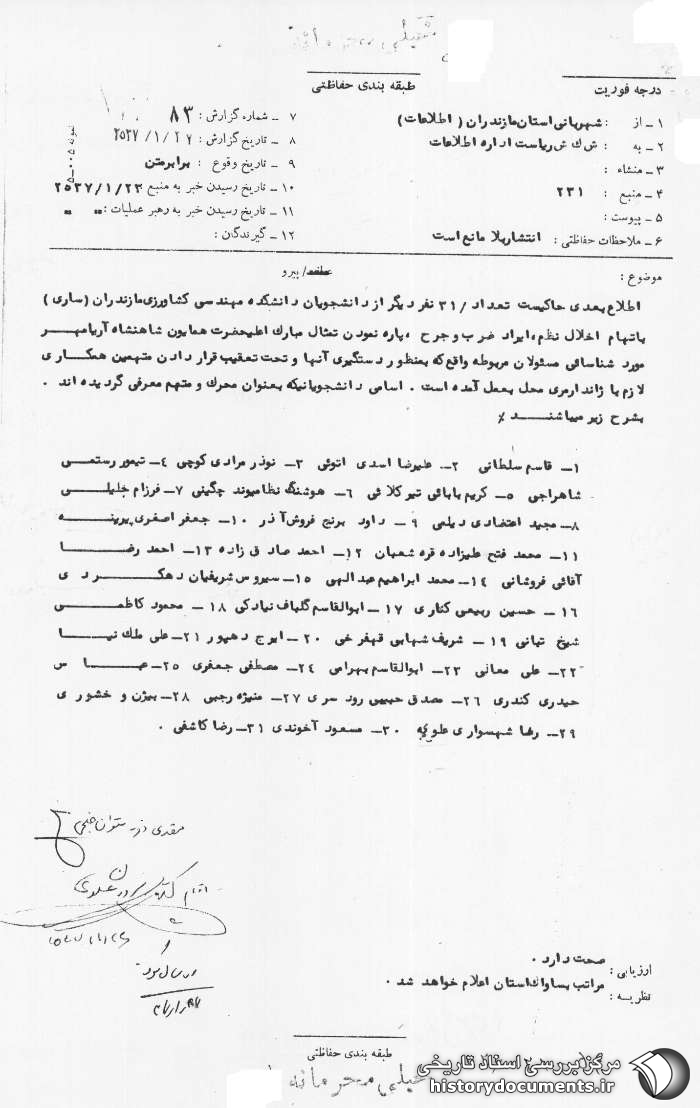 خیلی محرمانه
درجه فوریت
طبقه بندی حفاظتی
۱ ـ از : شهربانی استان مازندران ( اطلاعات)
۲ ـ به : ش ک ش ریاست اداره اطلاعات
۳ ـ منشاء :
۴ ـ منبع : ۲۳۱
۵ ـ پیوست :
۶ ـ ملاحظات حفاظتی : انتشار بلا مانع است
۷ ـ شماره گزارش : ۸۳
۸ ـ تاریخ گزارش : ۲۵۳۷/۱/۲۷
۹ ـ تاریخ وقوع : برابر متن
۱۰ ـ تاریخ رسیدن خبر به منبع ۲۵۳۷/۱/۲۳
۱۱ ـ تاریخ رسیدن خبر به رهبر عملیات : " "
۱۲ ـ گیرندگان :
نمونه ۰۰۵ـ۵
موضوع : / پیرو
اطلاع بعدی حاکیست تعداد /۳۱ نفر دیگر از دانشجویان دانشکده مهندسی کشاورزی مازندران (ساری)
باتهام اخلال نظم ، ایراد ضرب و جرح ، پاره نمودن تمثال مبارک اعلیحضرت همایون شاهنشاه آریامهر
مورد شناسائی مسئولان مربوطه واقع که بمنظور دستگیری آنها و تحت تعقیب قرار دادن متهمین همکاری
لازم با ژاندارمری محل بعمل آمده است . اسامی دانشجویانیکه بعنوان محرک و متهم معرفی گردیده اند .
بشرح زیر میباشند ٪
۱ـ قاسم سلطانی ۲ـ علیرضا اسدی اتوئی ۳ـ نوذر مرادی کوچی ۴ـ تیمور رستمی
شاهراجی ۵ـ کریم بابائی تیر کلائی ۶ـ هوشنگ نظامیوند چگینی ۷ـ فرزام خلیلی
۸ـ مجید اعتضادی دیلمی ۹ـ داود برنج فروش آذر ۱۰ـ جعفر اصغری پرینه
۱۱ـ محمد فتح علیزاده قره شعبان ۱۲ـ احمد صادق زاده ۱۳ـ احمد رضا
آقائی فروشانی ۱۴ـ محمد ابراهیم عبدالهی ۱۵ـ سیروس شریفیان دهکردی
۱۶ـ حسین ربیعی کناری ۱۷ـ ابوالقاسم گلباف نیادکی ۱۸ـ محمود کاظمی
شیخ تپانی ۱۹ـ شریف شهابی قهفرخی ۲۰ـ ایرج دهپور ۲۱ـ علی ملک نیا
۲۲ـ علی معانی ۲۳ـ ابوالقاسم بهرامی ۲۴ـ مصطفی جعفری ۲۵ـ عباس
حیدری کندری ۲۶ـ مصدق حبیبی رود سری ۲۷ـ منیژه رجبی ۲۸ـ بیژن و خشوری
۲۹ـ رضا شهسواری علویجه ۳۰ـ مسعود آخوندی ۳۱ـ رضا کاشفی .
اقدام
ارزیابی : صحت دارد .
نظریه : مراتب بساواک استان اعلام خواهد شد .
طبقه بندی حفاظتی
خیلی محرمانه
مرکز بررسی اسناد تاریخی
historydocuments.ir